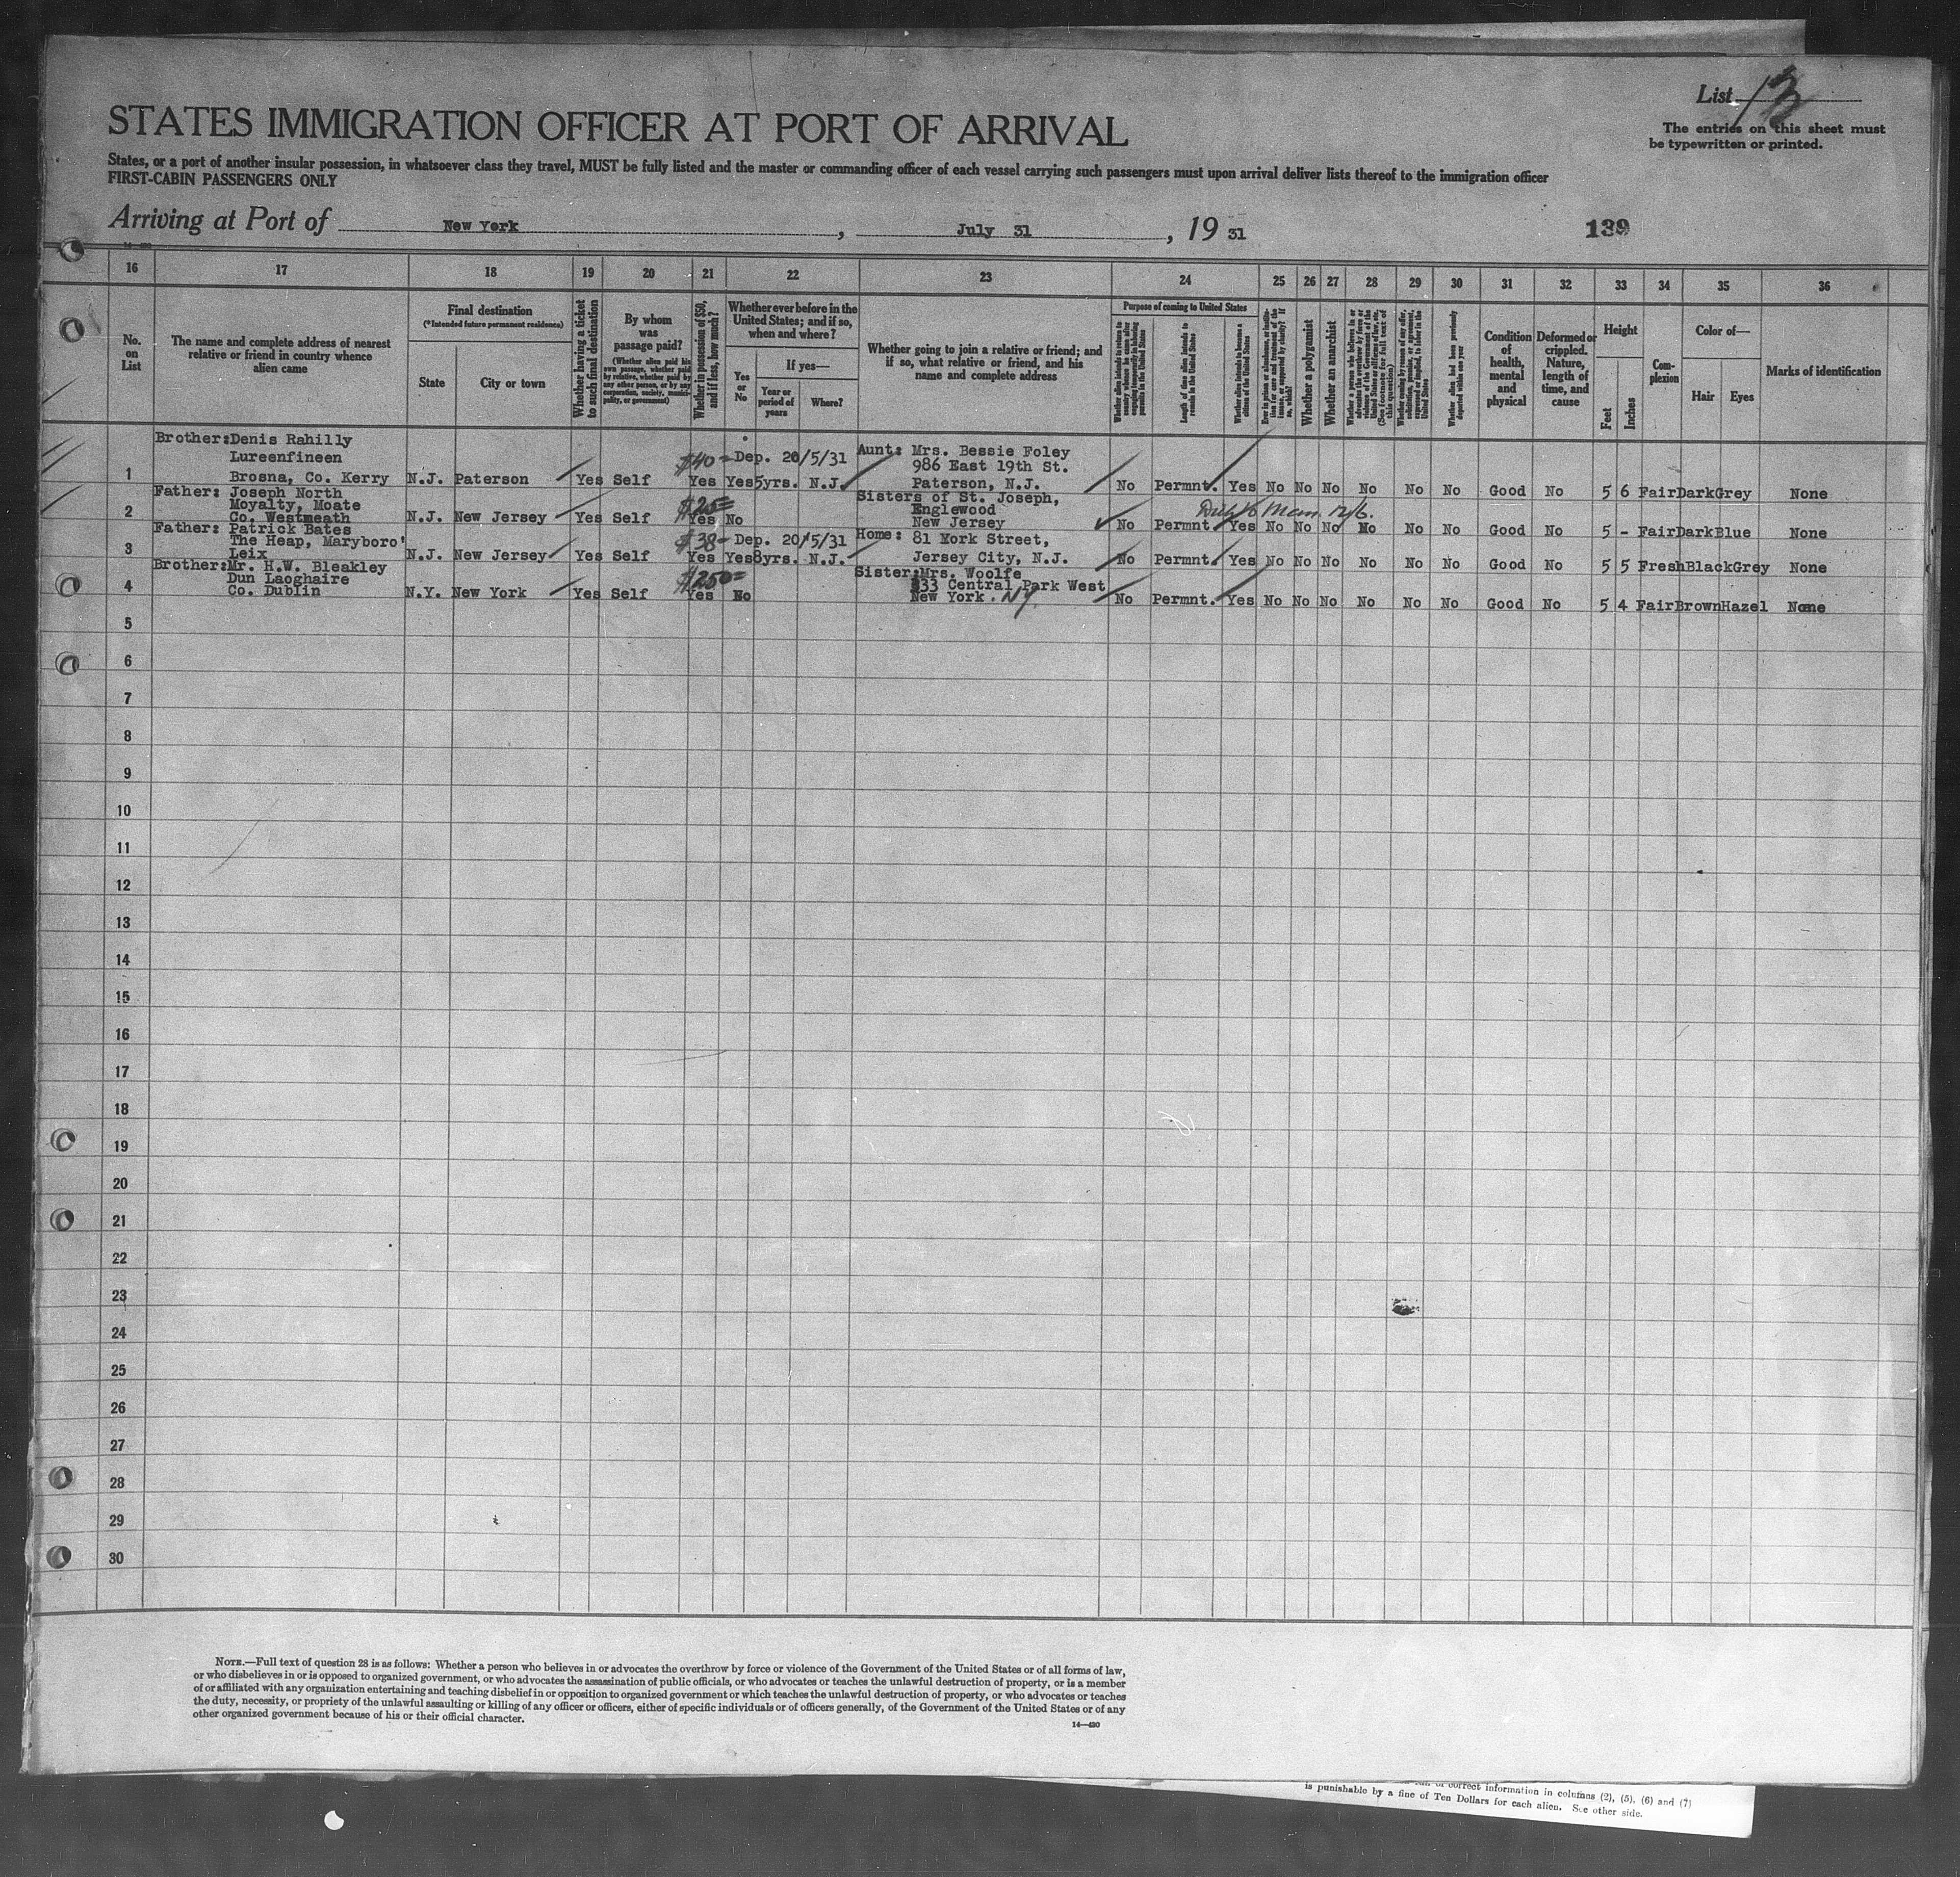 List 13
The entries on this sheet must
be typewritten or printed.
STATES IMMIGRATION OFFICER AT PORT OF ARRIVAL
States, or a port of another insular possession, in whatsoever class they travel, MUST be fully listed and the master or commanding officer of each vessel carrying such passengers must upon arrival deliver lists thereof to the immigration officer
FIRST-CABIN PASSENGERS ONLY
Arriving at Port of New York, July 31, 19 31
139
16 17 18 19 20 21 22 23 24 25 26 27 28 29 30 31 32 33 34 35 36
No.
on
List
The name and complete address of nearest
relative or friend in country whence
alien came
Final destination
(*Intended future permanent residence)
State
City or town
Whether having a ticket
to such final destination
By whom
was
passage paid?
(Whether alien paid his
own passage, whether paid
by relative, whether paid by
any other person, or by any
corporation, society, munici-
pality, or government)
Whether in possession of $50,
and if less, how much?
Whether ever before in the
United States; and if so,
when and where?
Yes
or
No
If yes—
Year or
period of
years
Where?
Whether going to join a relative or friend; and
if so, what relative or friend, and his
name and complete address
Purpose of coming to United States
Length of time alien intends to
remain in the United States
Whether alien intends to become a
citizen of the United States
Whether a polygamist
Whether an anarchist
Whether alien had been previously
deported within one year
Condition
of
health,
mental
and
physical
Deformed or
crippled.
Nature,
length of
time, and
cause
Height
Feet
Inches
Com-
plexion
Color of—
Hair
Eyes
Marks of identification
Brother: Denis Rahilly
Lureenfineen
1 Brosna, Co. Kerry N.J. Paterson Yes Self $40 Yes Yes 5yrs. N.J. Dep. 20/5/31
Aunt: Mrs. Bessie Foley
986 East 19th St.
Paterson, N.J. No Permnt. Yes No No No No No No Good No 5 6 Fair Dark Grey None
Father: Joseph North
Moyalty, Moate
2 Co. Westmeath N.J. New Jersey Yes Self $25 Yes No
Sisters of St. Joseph,
Englewood
New Jersey No Permnt. Yes No No No No No No Good No 5 - Fair Dark Blue None
Father: Patrick Bates
The Heap, Maryboro'
3 Leix N.J. New Jersey Yes Self $38 Yes Yes 8yrs. N.J. Dep. 20/5/31
Home: 81 York Street,
Jersey City, N.J. No Permnt. Yes No No No No No No Good No 5 5 Fresh Black Grey None
Brother: Mr. H.W. Bleakley
Dun Laoghaire
4 Co. Dublin N.Y. New York Yes Self $250 Yes No
Sister: Mrs. Woolfe
333 Central Park West
New York. N.Y. No Permnt. Yes No No No No No No Good No 5 4 Fair Brown Hazel None
5
6
7
8
9
10
11
12
13
14
15
16
17
18
19
20
21
22
23
24
25
26
27
28
29
30
NOTE.—Full text of question 28 is as follows: Whether a person who believes in or advocates the overthrow by force or violence of the Government of the United States or of all forms of law,
or who disbelieves in or is opposed to organized government, or who advocates the assassination of public officials, or who advocates or teaches the unlawful destruction of property, or is a member
of or affiliated with any organization entertaining and teaching disbelief in or opposition to organized government or which teaches the unlawful destruction of property, or who advocates or teaches
the duty, necessity, or propriety of the unlawful assaulting or killing of any officer or officers, either of specific individuals or of officers generally, of the Government of the United States or of any
other organized government because of his or their official character.
14—480
correct information in columns (2), (5), (6) and (7)
is punishable by a fine of Ten Dollars for each alien. See other side.